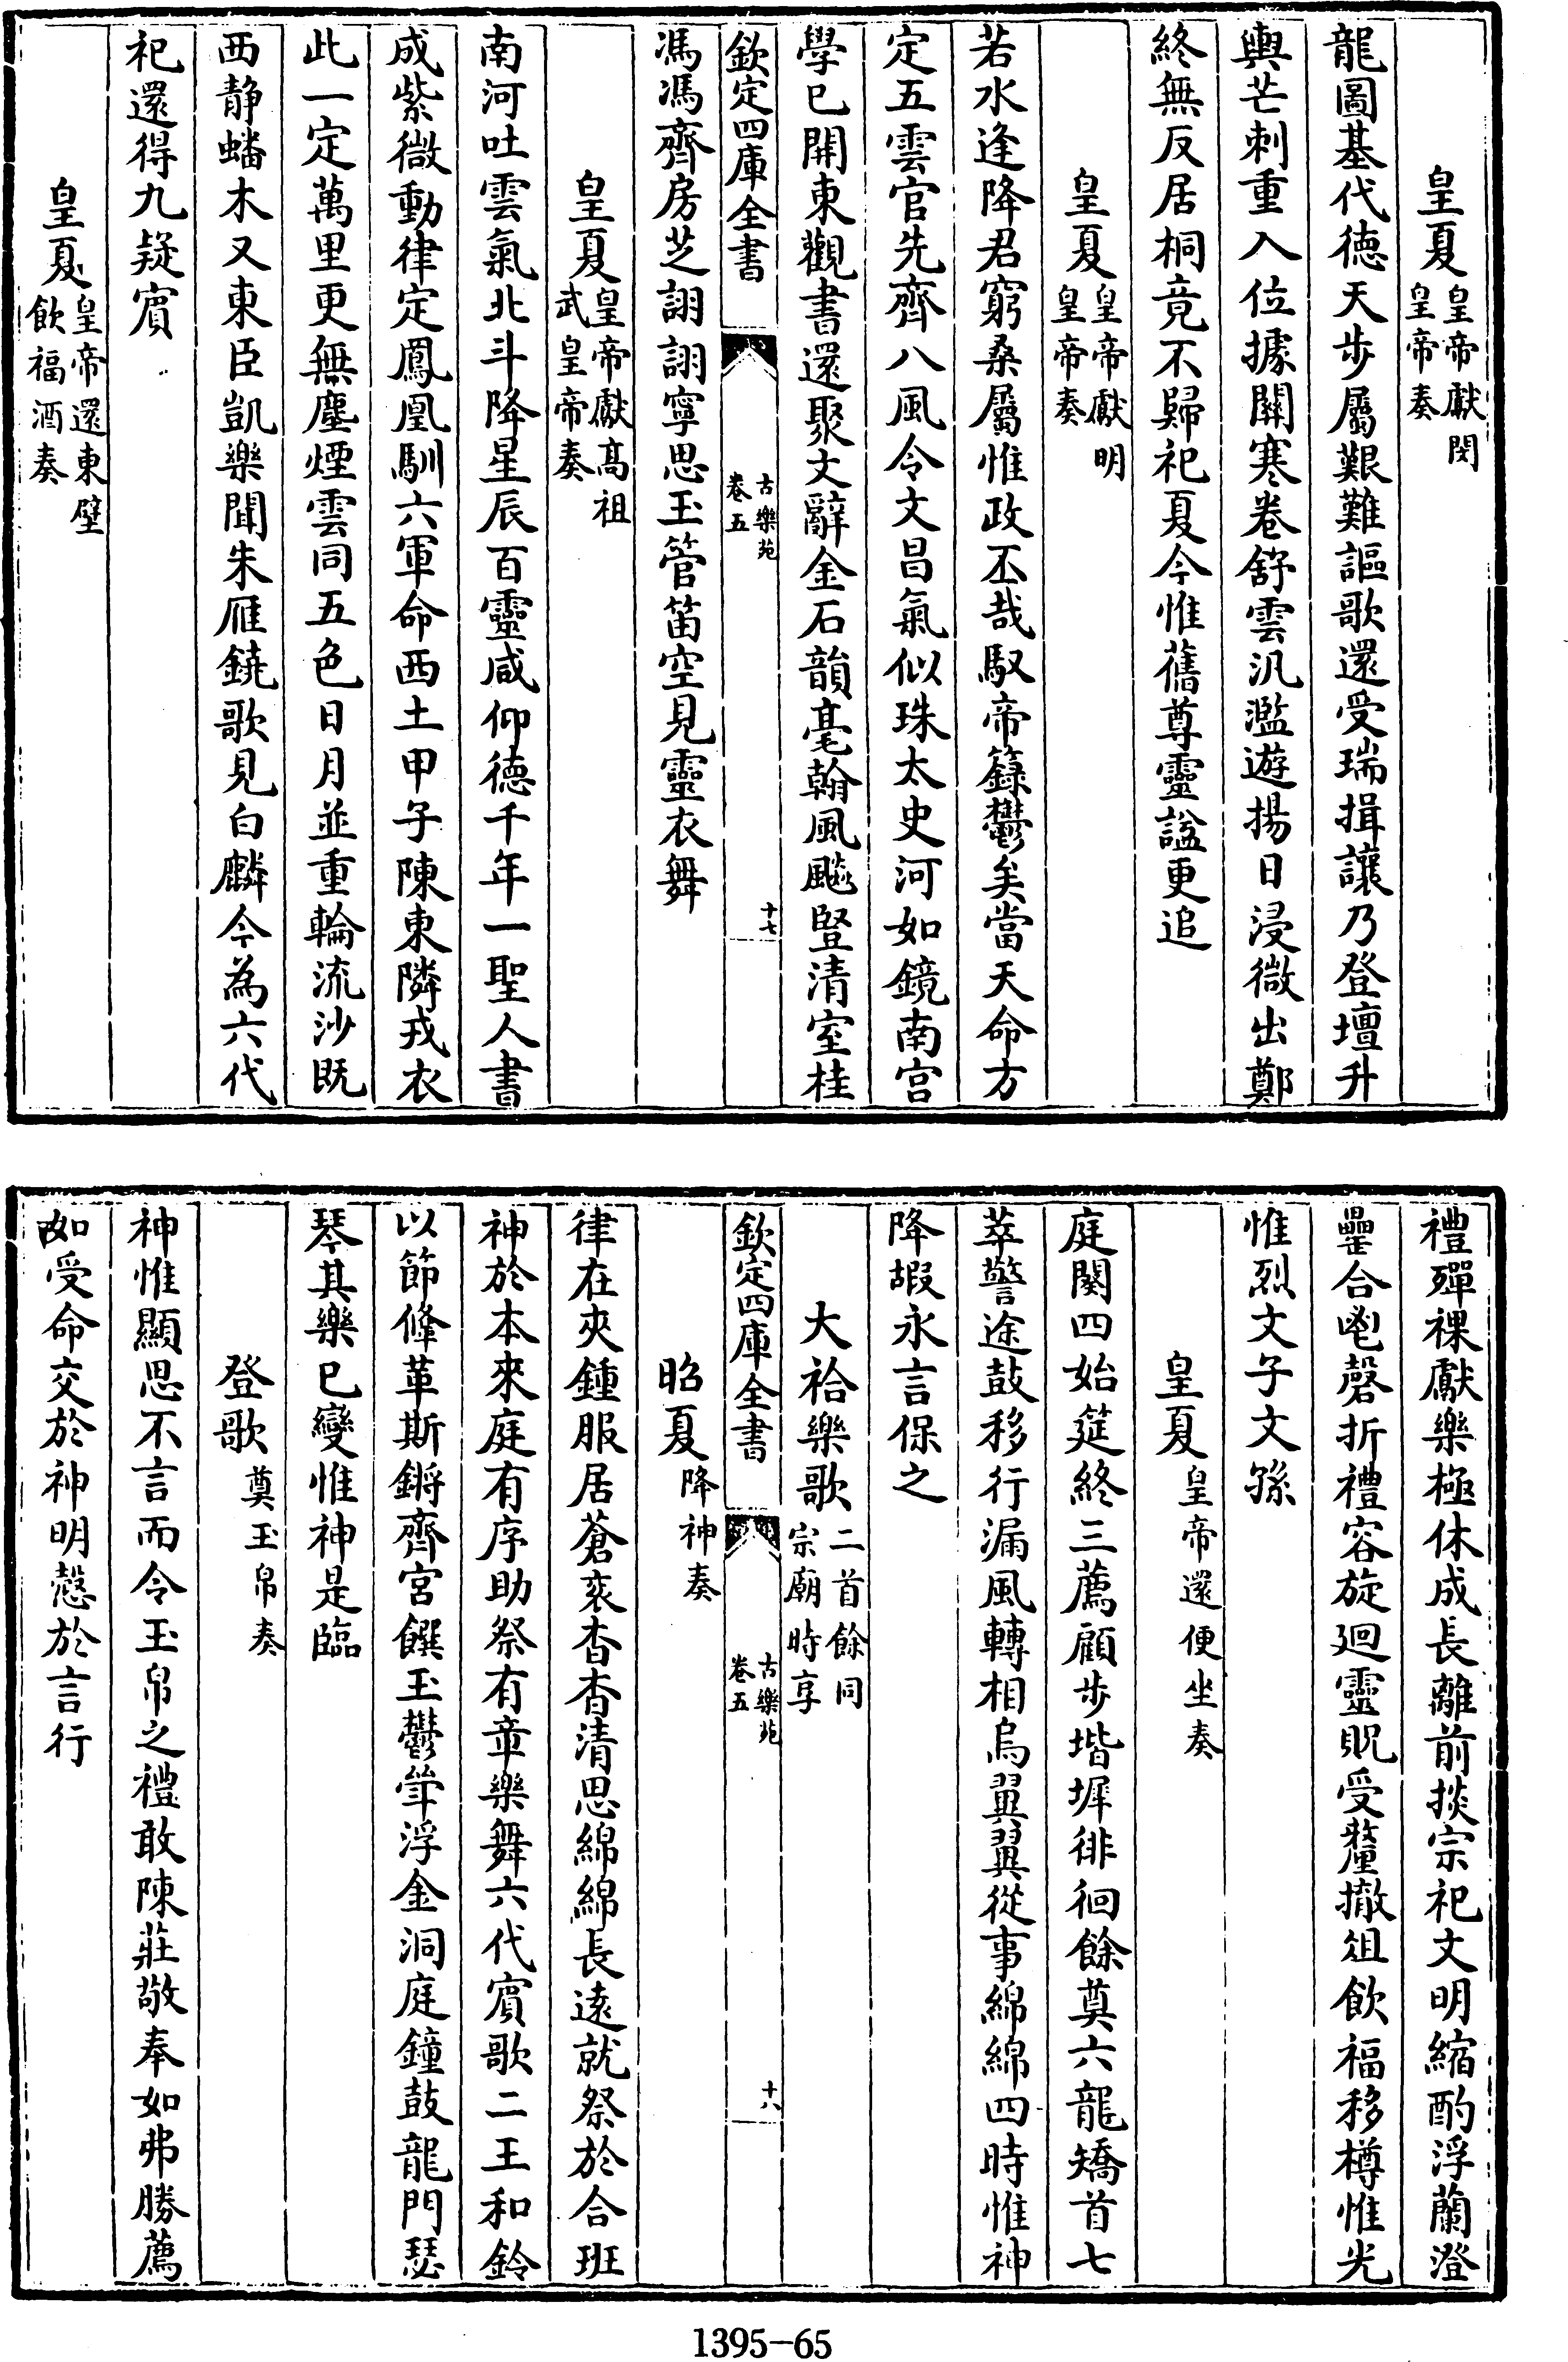 皇夏皇帝獻閔皇帝奏
龍圖基代德天步屬艱難謳歌還受瑞揖讓乃登壇升
輿芒刺重入位據關寒卷舒雲汎濫遊揚日浸微出鄭
終無反居桐竟不歸祀夏今惟舊尊靈諡更追
皇夏皇帝獻明皇帝奏
若水逢降君窮桑屬惟政丕哉馭帝籙鬱矣當天命方
定五雲官先齊八風令文昌氣似珠太史河如鏡南宫
學已開東觀書還聚文辭金石韻毫翰風飈豎清室桂
欽定四庫全書
古樂苑
卷五
十七
馮馮齊房芝詡詡寧思玉管笛空見靈衣舞
皇夏皇帝獻髙祖武皇帝奏
南河吐雲氣北斗降星辰百靈咸仰德千年一聖人書
成紫微動律定鳳凰馴六軍命西土甲子陳東隣戎衣
此一定萬里更無塵煙雲同五色日月並重輪流沙既
西静蟠木又東臣凱樂聞朱雁鐃歌見白麟今為六代
祀還得九疑賓
皇夏皇帝還東壁飲福酒奏
禮殫祼獻樂極休成長離前掞宗祀文明縮酌浮蘭澄
罍合鬯磬折禮容旋廻靈貺受釐撤俎飲福移樽惟光
惟烈文子文孫
皇夏皇帝還便坐奏
庭闋四始筵終三薦顧步堦墀徘徊餘奠六龍矯首七
萃警途鼓移行漏風轉相烏翼翼從事綿綿四時惟神
降嘏永言保之
大祫樂歌二首餘同宗廟時享
欽定四庫全書
古樂苑
卷五
十八
昭夏降神奏
律在夾鍾服居蒼衮杳杳清思綿綿長遠就祭於合班
神於本來庭有序助祭有章樂舞六代賓歌二王和鈴
以節鞗革斯鏘齊宮饌玉鬱斝浮金洞庭鐘鼓龍門瑟
琴其樂已變惟神是臨
登歌奠玉帛奏
神惟顯思不言而令玉帛之禮敢陳莊敬奉如弗勝薦
如受命交於神明慤於言行
1395-65